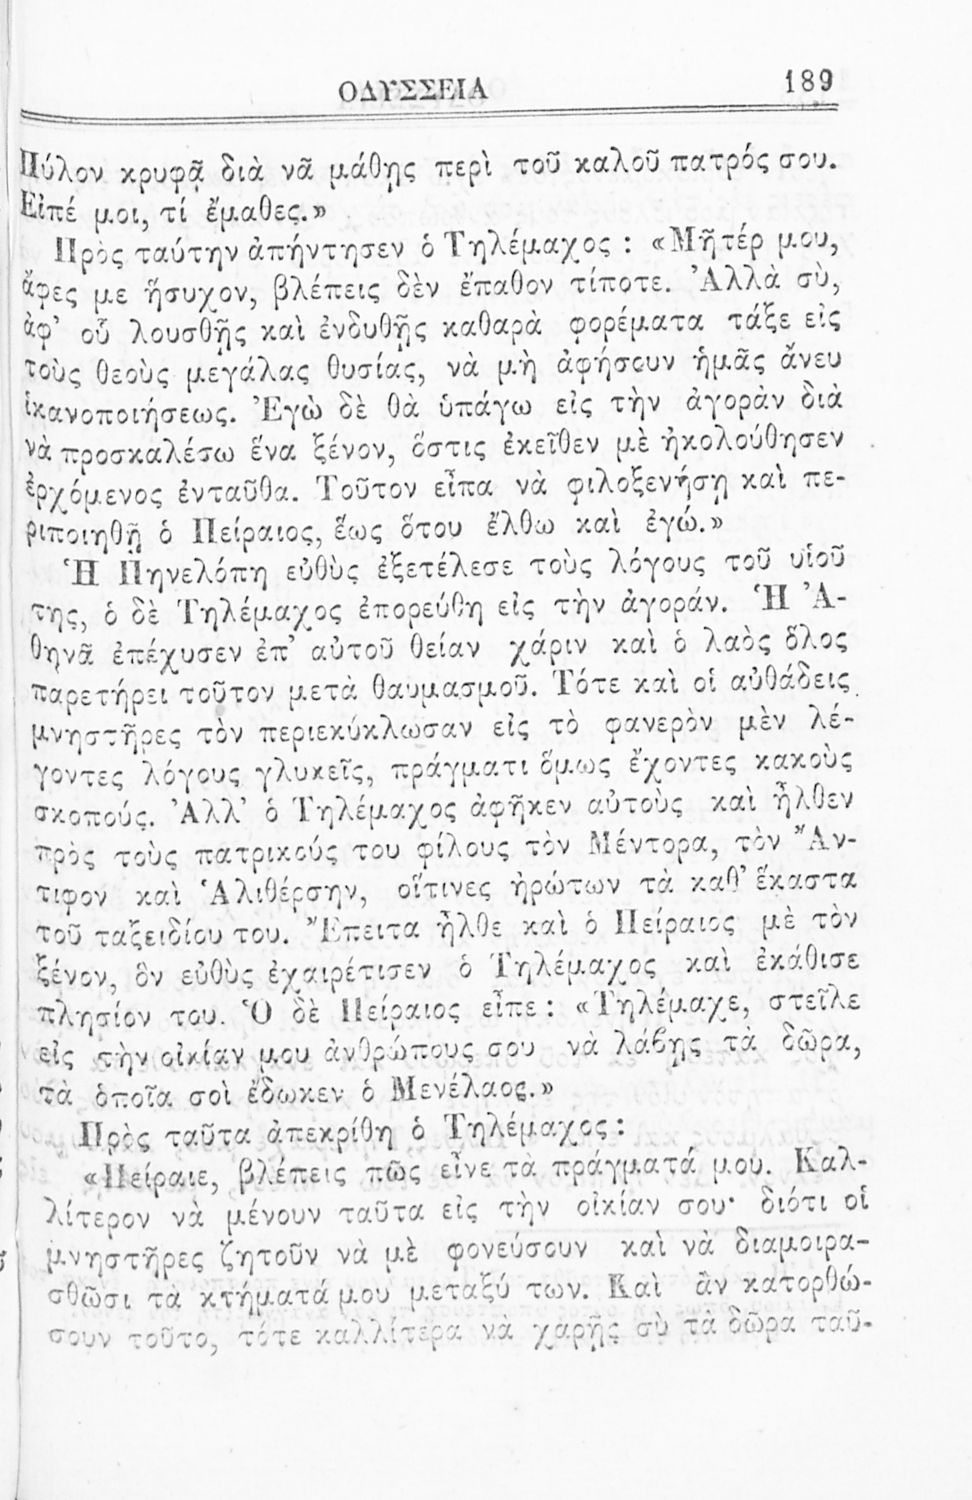 ΟΔΥΣΣΕΙΑ 189
Πύλον κρυφᾷ διὰ νᾶ μάθῃς περὶ τοῦ καλοῦ πατρός σου.
Εἰπέ μοι, τί ἔμαθες.»
Πρὸς ταύτην ἀπήντησεν ὁ Τηλέμαχος : «Μῆτέρ μου,
ἄφες με ἥσυχον, βλέπεις δὲν ἔπαθον τίποτε. Ἀλλὰ σὺ,
ἀφ’ οὗ λουσθῇς καὶ ἐνδυθῇς καθαρὰ φορέματα τάξε εἰς
τοὺς θεοὺς μεγάλας θυσίας, νὰ μὴ ἀφήσουν ἡμᾶς ἄνευ
ἱκανοποιήσεως. Ἐγὼ δὲ θὰ ὑπάγω εἰς τὴν ἀγορὰν διὰ
νὰ προσκαλέσω ἕνα ξένον, ὅστις ἐκεῖθεν μὲ ἠκολούθησεν
ἐρχόμενος ἐνταῦθα. Τοῦτον εἶπα νὰ φιλοξενήσῃ καὶ πε-
ριποιηθῇ ὁ Πείραιος, ἕως ὅτου ἔλθω καὶ ἐγώ.»
Ἡ Πηνελόπη εὐθὺς ἐξετέλεσε τοὺς λόγους τοῦ υἱοῦ
της, ὁ δὲ Τηλέμαχος ἐπορεύθη εἰς τὴν ἀγοράν. Ἡ Ἀ-
θηνᾶ ἐπέχυσεν ἐπ’ αὐτοῦ θείαν χάριν καὶ ὁ λαὸς ὅλος
παρετήρει τοῦτον μετὰ θαυμασμοῦ. Τότε καὶ οἱ αὐθάδεις
μνηστῆρες τὸν περιεκύκλωσαν εἰς τὸ φανερὸν μὲν λέ-
γοντες λόγους γλυκεῖς, πράγματι ὅμως ἔχοντες κακοὺς
σκοπούς. Ἀλλ’ ὁ Τηλέμαχος ἀφῆκεν αὐτοὺς καὶ ἦλθεν
πρὸς τοὺς πατρικούς του φίλους τὸν Μέντορα, τὸν Ἄν-
τιφον καὶ Ἁλιθέρσην, οἵτινες ἠρώτων τὰ καθ’ ἕκαστα
τοῦ ταξειδίου του. Ἔπειτα ἦλθε καὶ ὁ Πείραιος μὲ τὸν
ξένον, ὃν εὐθὺς ἐχαιρέτισεν ὁ Τηλέμαχος καὶ ἐκάθισε
πλησίον του. Ὁ δὲ Πείραιος εἶπε : «Τηλέμαχε, στεῖλε
εἰς τὴν οἰκίαν μου ἀνθρώπους σου νὰ λάβῃς τὰ δῶρα,
τὰ ὁποῖα σοὶ ἔδωκεν ὁ Μενέλαος.»
Πρὸς ταῦτα ἀπεκρίθη ὁ Τηλέμαχος :
«Πείραιε, βλέπεις πῶς εἶνε τὰ πράγματά μου. Καλ-
λίτερον νὰ μένουν ταῦτα εἰς τὴν οἰκίαν σου· διότι οἱ
μνηστῆρες ζητοῦν νὰ μὲ φονεύσουν καὶ νὰ διαμοιρα-
σθῶσι τὰ κτήματά μου μεταξύ των. Καὶ ἂν κατορθώ-
σουν τοῦτο, τότε καλλίτερα νὰ χαρῇς σὺ τὰ δῶρα ταῦ-